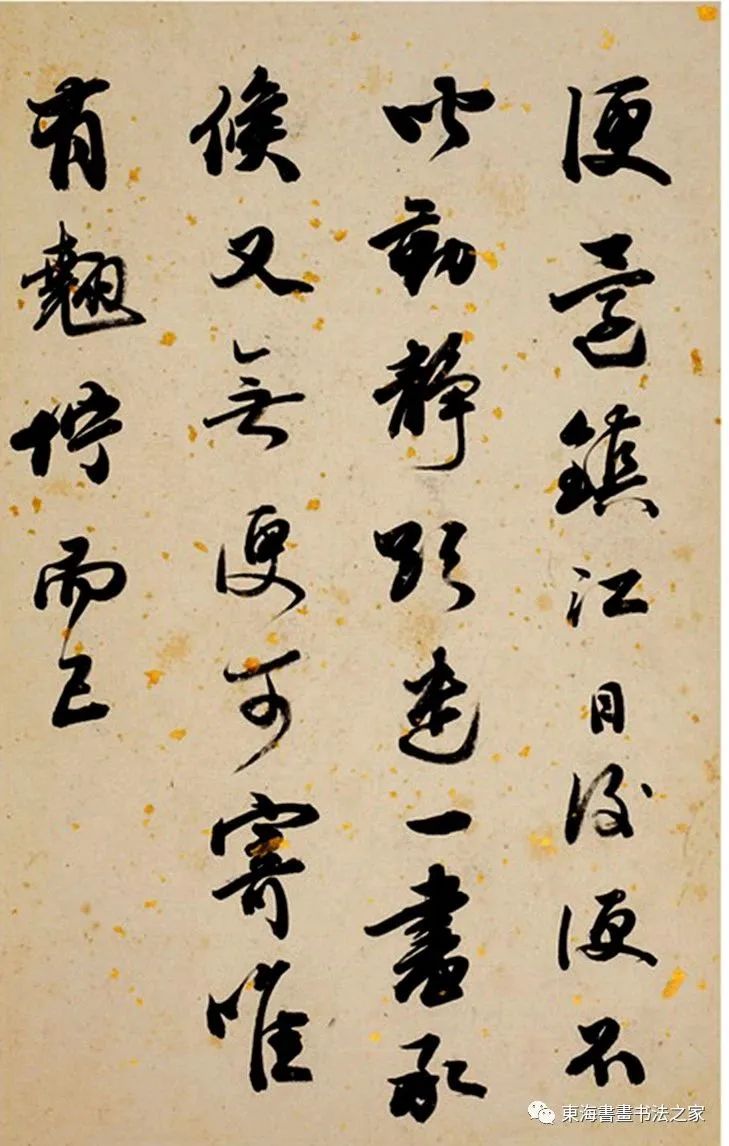 便還鎮江自後便不
動靜欲一書承
候又無便可寄唯
有翹竚而已
東海書畫书法之家